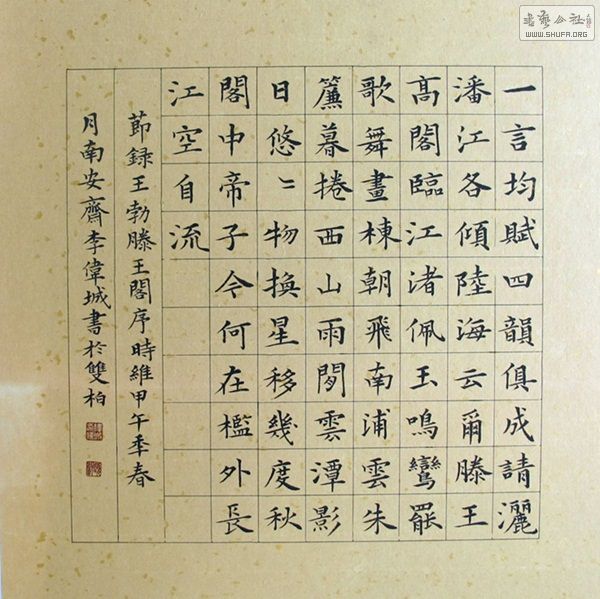 一言均賦四韻俱成請灑
潘江各傾陸海云爾滕王
髙閣臨江渚佩玉鳴鸞罷
歌舞畫棟朝飛南浦雲朱
簾暮捲西山雨閒雲潭影
日悠〻物換星移幾度秋
閣中帝子今何在檻外長
江空自流
節録王勃滕王閣序時維甲午季春
月南安齋李偉城書於雙柏
書藝公社
WWW.SHUFA.ORG